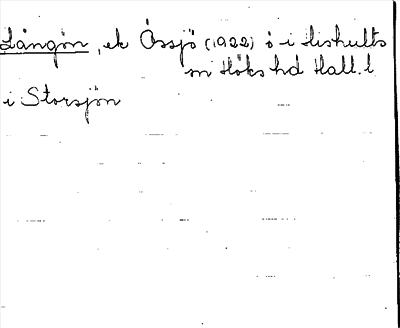 Långön, ek Össjö (1922) ö i Hishults
sn Höks hd Hall. l
i Storsjön